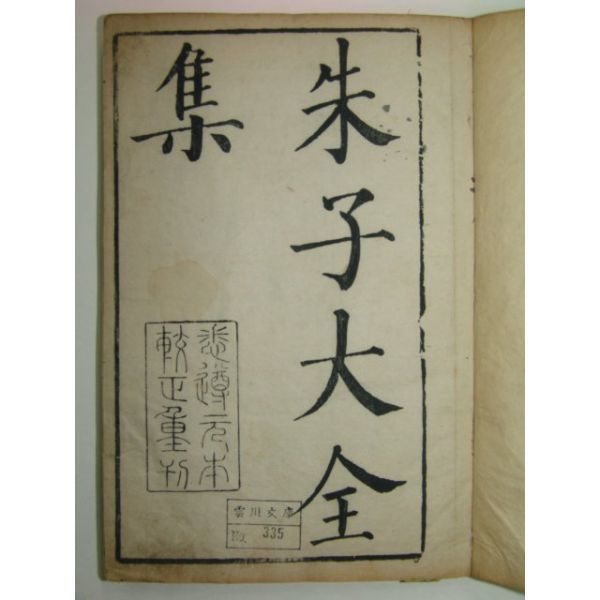 朱子大全
集
悉遵元本
較正重刊
雲川文庫
No. 335